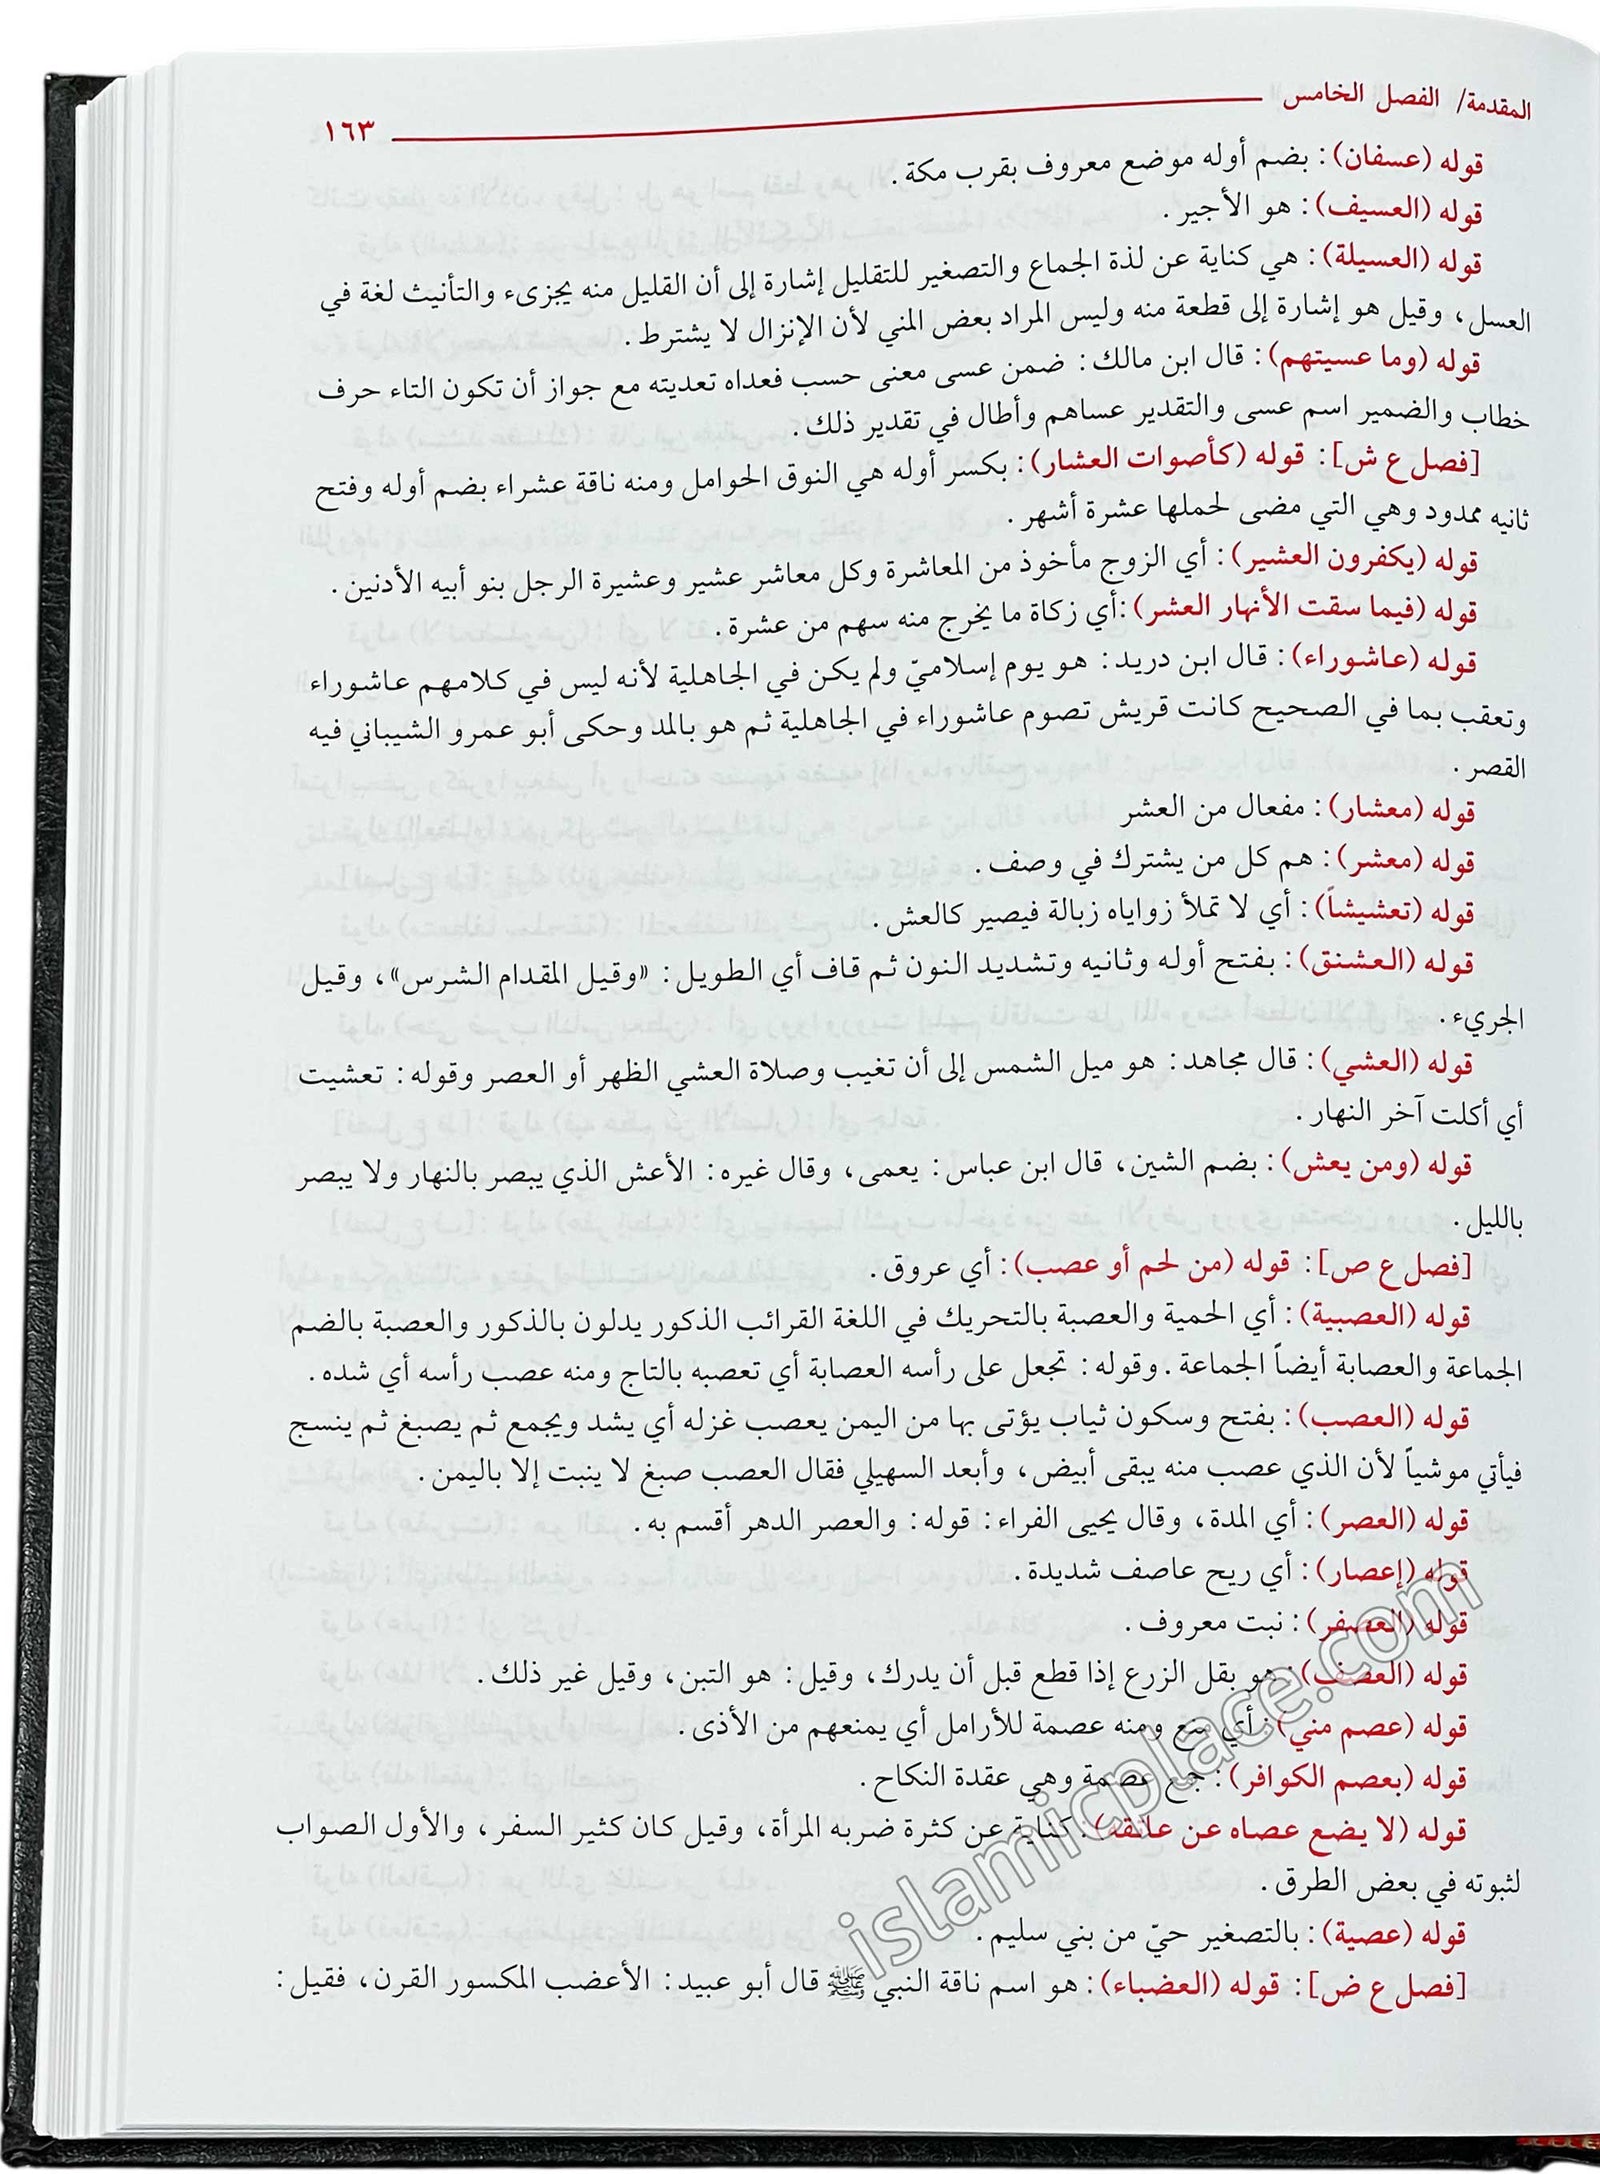 المقدمة/ الفصل الخامس ١٦٣
قوله (عسفان): بضم أوله موضع معروف بقرب مكة.
قوله (العسيف): هو الأجير.
قوله (العسيلة): هي كناية عن لذة الجماع والتصغير للتقليل إشارة إلى أن القليل منه يجزىء والتأنيث لغة في
العسل، وقيل هو إشارة إلى قطعة منه وليس المراد بعض المني لأن الإنزال لا يشترط.
قوله (وما عسيتهم): قال ابن مالك: ضمن عسى معنى حسب فعداه تعديته مع جواز أن تكون التاء حرف
خطاب والضمير اسم عسى والتقدير عساهم وأطال في تقدير ذلك.
[فصل ع ش]: قوله (كأصوات العشار): بكسر أوله هي النوق الحوامل ومنه ناقة عشراء بضم أوله وفتح
ثانيه ممدود وهي التي مضى لحملها عشرة أشهر.
قوله (يكفرون العشير): أي الزوج مأخوذ من المعاشرة وكل معاشر عشير وعشيرة الرجل بنو أبيه الأدنين.
قوله (فيما سقت الأنهار العشر): أي زكاة ما يخرج منه سهم من عشرة.
قوله (عاشوراء): قال ابن دريد: هو يوم إسلاميّ ولم يكن في الجاهلية لأنه ليس في كلامهم عاشوراء
وتعقب بما في الصحيح كانت قريش تصوم عاشوراء في الجاهلية ثم هو بالمد وحكى أبو عمرو الشيباني فيه
القصر.
قوله (معشار): مفعال من العشر
قوله (معشر): هم كل من يشترك في وصف.
قوله (تعشيشاً): أي لا تملأ زواياه زبالة فيصير كالعش.
قوله (العشنق): بفتح أوله وثانيه وتشديد النون ثم قاف أي الطويل: «وقيل المقدام الشرس»، وقيل
الجريء.
قوله (العشي): قال مجاهد: هو ميل الشمس إلى أن تغيب وصلاة العشي الظهر أو العصر وقوله: تعشيت
أي أكلت آخر النهار.
قوله (ومن يعش): بضم الشين، قال ابن عباس: يعمى، وقال غيره: الأعش الذي يبصر بالنهار ولا يبصر
بالليل.
[فصل ع ص]: قوله (من لحم أو عصب): أي عروق.
قوله (العصبية): أي الحمية والعصبة بالتحريك في اللغة القرائب الذكور يدلون بالذكور والعصبة بالضم
الجماعة والعصابة أيضاً الجماعة. وقوله: تجعل على رأسه العصابة أي تعصبه بالتاج ومنه عصب رأسه أي شده.
قوله (العصب): بفتح وسكون ثياب يؤتى بها من اليمن يعصب غزله أي يشد ويجمع ثم يصبغ ثم ينسج
فيأتي موشياً لأن الذي عصب منه يبقى أبيض، وأبعد السهيلي فقال العصب صبغ لا ينبت إلا باليمن.
قوله (العصر): أي المدة، وقال يحيى الفراء: قوله: والعصر الدهر أقسم به.
قوله (إعصار): أي ريح عاصف شديدة.
قوله (العصفر): نبت معروف.
قوله (العصف): هو بقل الزرع إذا قطع قبل أن يدرك، وقيل: هو التبن، وقيل غير ذلك.
قوله (عصم مني): أي منع ومنه عصمة للأرامل أي يمنعهم من الأذى.
قوله (بعصم الكوافر): جمع عصمة وهي عقدة النكاح.
قوله (لا يضع عصاه عن عاتقه): كناية عن كثرة ضربه المرأة، وقيل كان كثير السفر، والأول الصواب
لثبوته في بعض الطرق.
قوله (عصية): بالتصغير حيّ من بني سليم.
[فصل ع ض]: قوله (العضباء): هو اسم ناقة النبي ﷺ قال أبو عبيد: الأعضب المكسور القرن، فقيل:
islamicplace.com